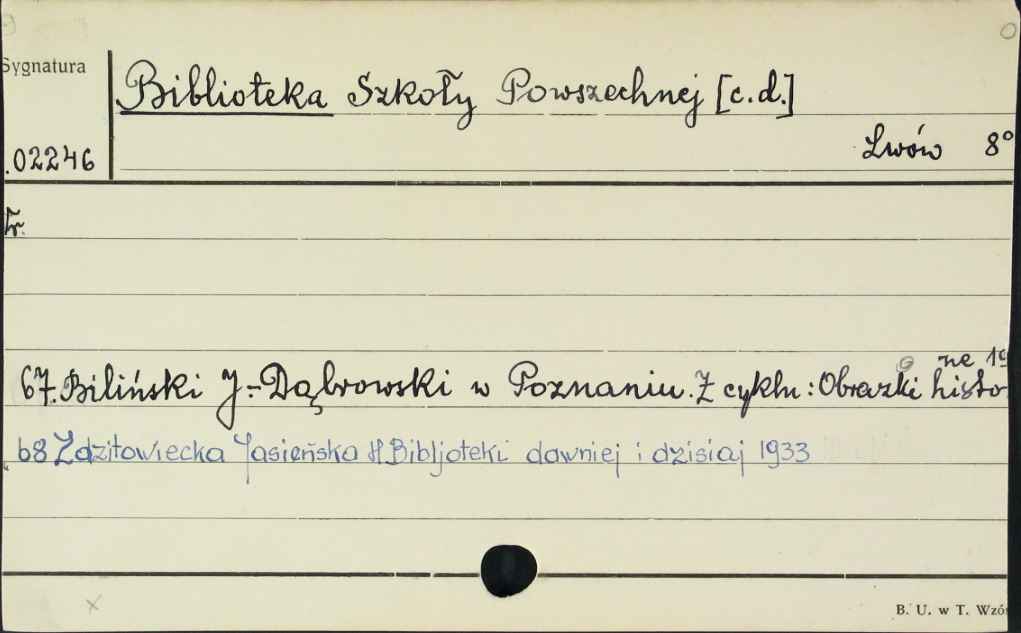 Sygnatura
Biblioteka Szkoły Powszechnej [c.d.]
.02246
Lwów 8°
67. Biliński J.-Dąbrowski w Poznaniu. Z cyklu: Obrazki histo
ne
68 Zdziłowiecka Jasieńska H Bibljoteki dawniej i dzisiaj 1933
B. U. w T. Wzó